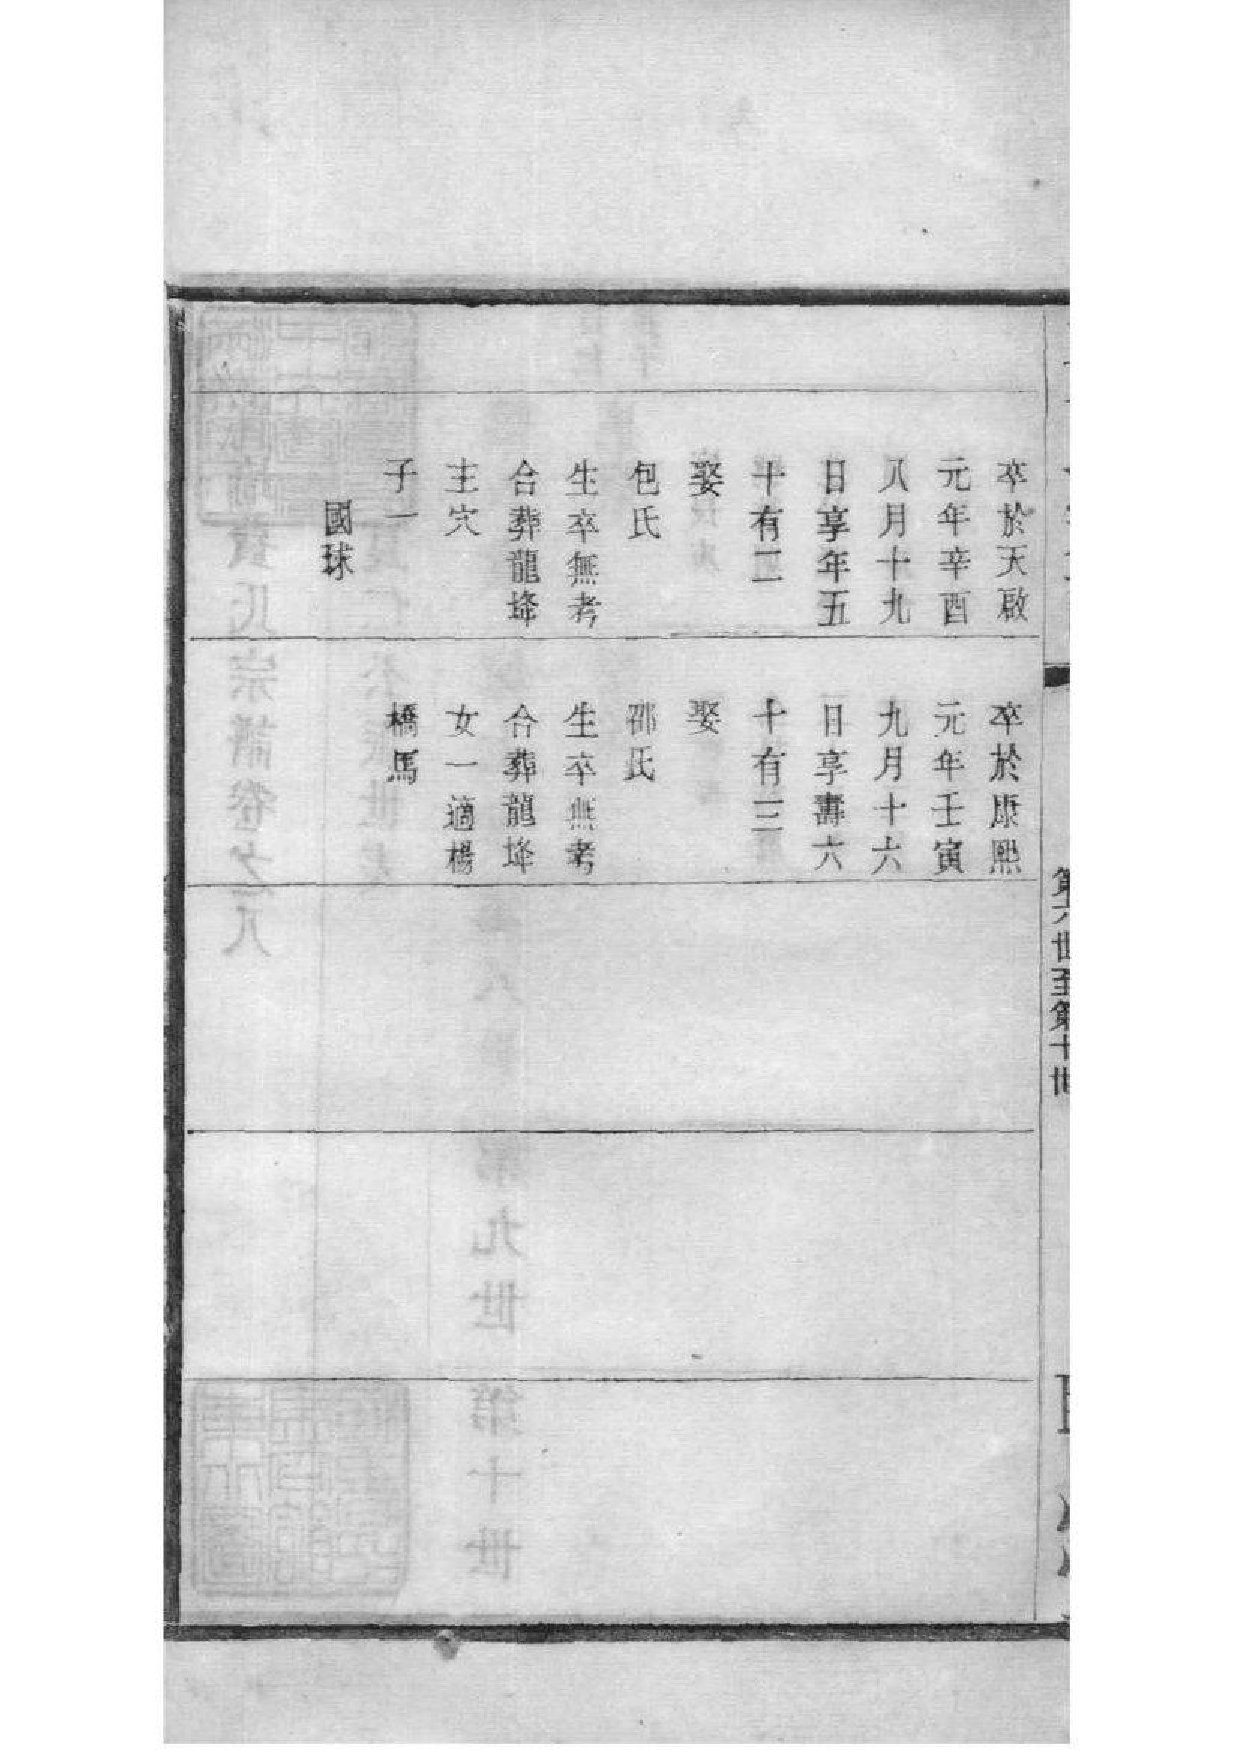 卒於天啟
元年辛酉
八月十九
日享年五
十有二
娶
包氏
生卒無考
合葬龍埄
主穴
子一
國球
卒於康熙
元年壬寅
九月十六
日享壽六
十有三
娶
邵氏
生卒無考
合葬龍埄
女一適楊
橋馬
第六世至第十世